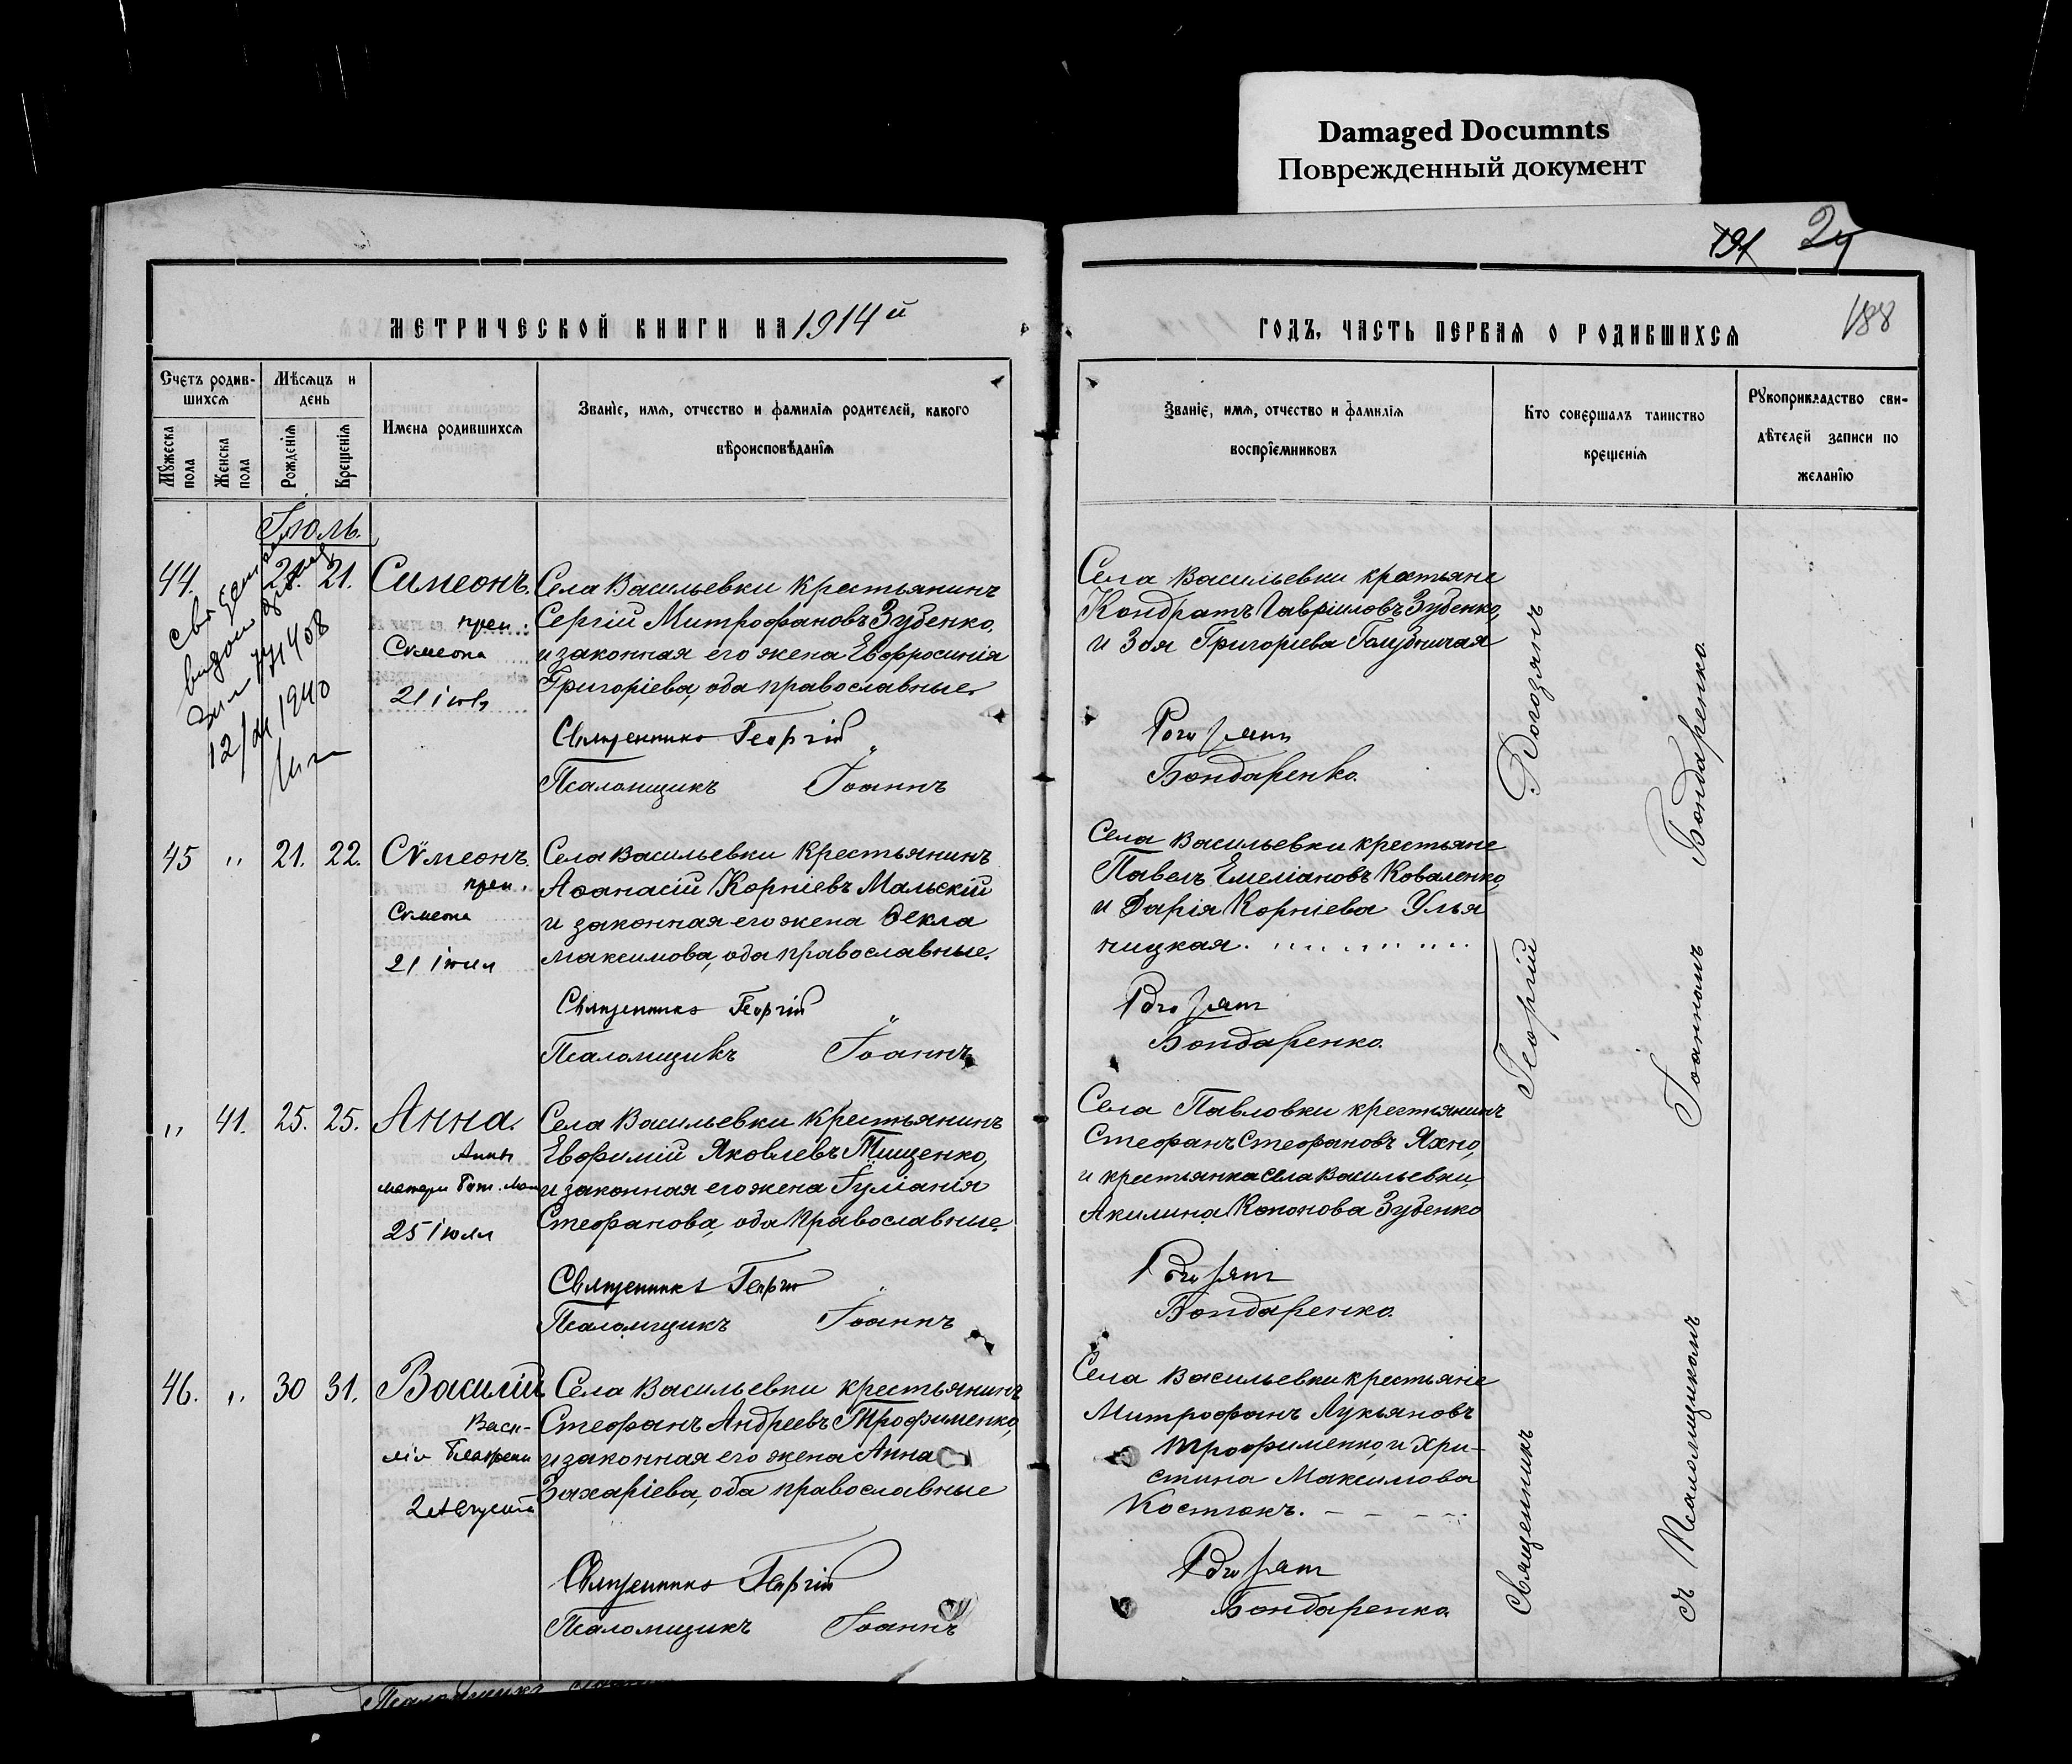 Damaged Documnts
Поврежденный документ
191 24
188
МЕТРИЧЕСКОЙ КНИГИ НА 1914й
ГОДЪ, ЧАСТЬ ПЕРВАЯ О РОДИВШИХСЯ
Счетъ родив-
шихся
Мѣсяцъ и
день
Имена родившихся
Званіе, имя, отчество и фамилія родителей, какого
вѣроисповѣданія
Мужеска
пола
Женска
пола
Рожденія
Крещенія
Званіе, имя, отчество и фамилія
воспріемниковъ
Кто совершалъ таинство
крещенія
Рукоприкладство сви-
дѣтелей записи по
желанію
Іюль.
44. 21. 21. Симеонъ.
преп.
Сѵмеона
21 іюля
12/ 1940
Села Васильевки крестьянинъ
Сергій Митрофановъ Зубенко,
и законная его жена Евфросинія
Григоріева, оба православные.
Священникъ Георгій
Псаломщикъ Іоаннъ
Села Васильевки крестьяне
Кондратъ Гавріиловъ Зубенко,
и Зоя Григорьева Голубничая
Рогозянъ
Бондаренко.
45 " 21. 22. Сѵмеонъ.
преп.
Сѵмеона
21 іюля
Села Васильевки крестьянинъ
Аѳанасій Корніевъ Мальскій
и законная его жена Ѳекла
Максимова, оба православные.
Священникъ Георгій
Псаломщикъ Іоаннъ
Села Васильевки крестьяне
Павелъ Емеліановъ Коваленко,
и Дарія Корніева Улья
ницкая.
Рогозянъ
Бондаренко.
" 41. 25. 25. Анна.
Анны
матери
25 іюля
Села Васильевки крестьянинъ
Евфимій Яковлевъ Тищенко,
и законная его жена Іуліанія
Стефанова, оба православные.
Священникъ Георгій
Псаломщикъ Іоаннъ
Села Павловки крестьянинъ
Стефанъ Стефановъ Яхно,
и крестьянка села Васильевки,
Акилина Кононова Зубенко
Рогозянъ
Бондаренко.
46. " 30 31. Василій
Васи-
лія
2 августа
Села Васильевки крестьянинъ
Стефанъ Андреевъ Трофименко,
и законная его жена Анна
Захаріева, оба православные
Священникъ Георгій
Псаломщикъ Іоаннъ
Села Васильевки крестьяне
Митрофанъ Лукьяновъ
Трофименко, и Хри-
стина Максимова
Костюкъ.
Рогозянъ
Бондаренко.
Священникъ Георгій Рогозянъ
съ Псаломщикомъ Іоанномъ Бондаренко.